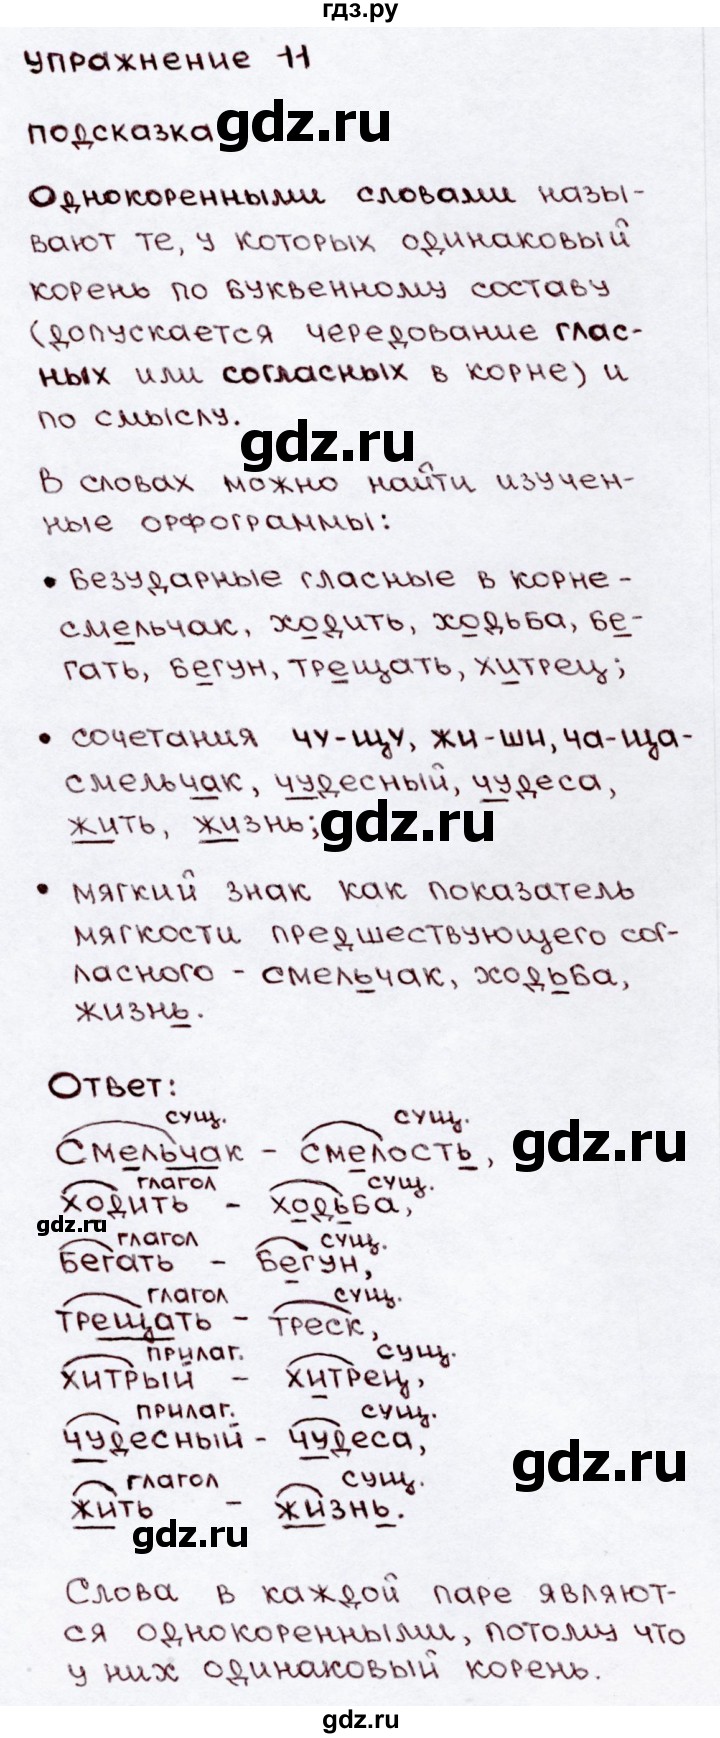 гдз.ру
упражнение 11
подсказка gdz.ru
Однокоренными словами назы-
вают те, у которых одинаковый
корень по буквенному составу
(допускается чередование глас-
ных или согласных в корне) и
по смыслу.
gdz.ru
В словах можно найти изучен-
ные орфограммы:
• безударные гласные в корне -
смельчак, ходить, ходьба, бе-
гать, бегун, трещать, хитрец;
• сочетания чу-щу, жи-ши, ча-ща-
смельчак, чудесный, чудеса,
жить, жизнь; gdz.ru
• мягкий знак как показатель
мягкости предшествующего сог-
ласного - смельчак, ходьба,
жизнь.
Ответ:
сущ. сущ.
Смельчак - смелость, gdz.ru
глагол сущ.
ходить - ходьба,
gdz.ru
глагол сущ.
бегать - бегун,
глагол сущ.
трещать - треск,
прилаг. сущ.
хитрый - хитрец,
прилаг. сущ.
чудесный - чудеса,
gdz.ru
глагол сущ.
жить - жизнь.
gdz.ru
Слова в каждой паре являют-
ся однокоренными, потому что
у них одинаковый корень.
gdz.ru